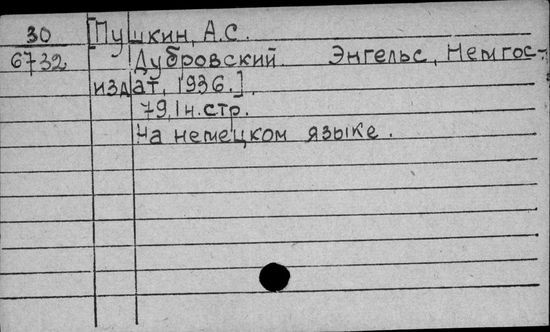 30 [Пушкин, А.С.
6732 Дубровский. Энгельс, Немгос-
издат, 1936.].
79,1 н.стр.
На немецком языке.